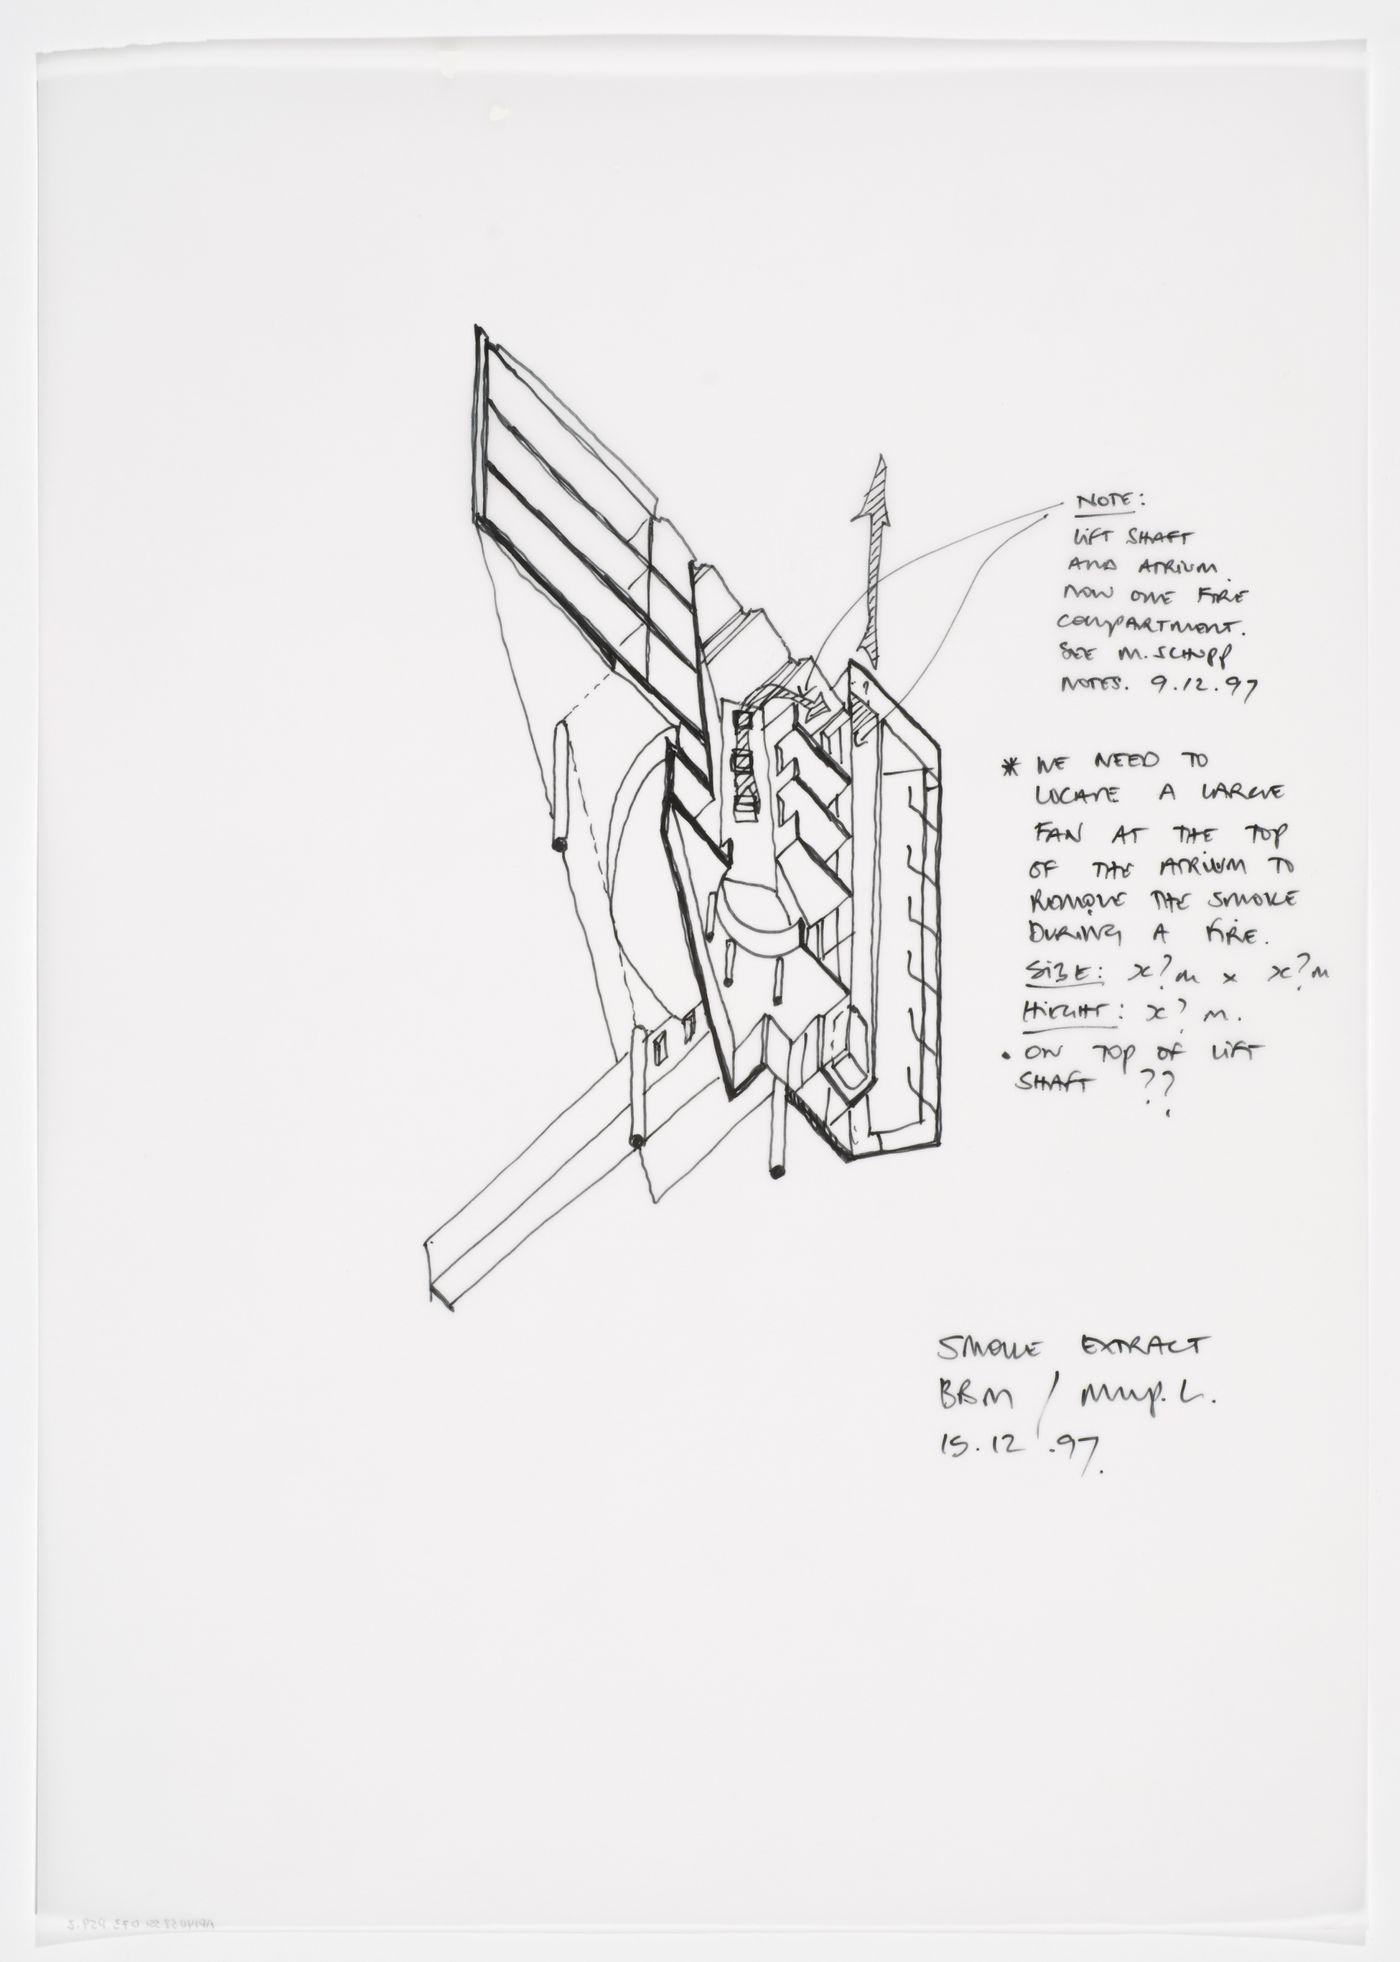 NOTE:
LIFT SHAFT
AND ATRIUM
NOW ONE FIRE
COMPARTMENT.
SEE M. SCHUPP
NOTES. 9.12.97
* WE NEED TO
LOCATE A LARGE
FAN AT THE TOP
OF THE ATRIUM TO
REMOVE THE SMOKE
DURING A FIRE.
SIZE: x?m x x?m
HEIGHT: x? m.
• ON TOP OF LIFT
SHAFT ??
?
SMOKE EXTRACT
BBM /
15.12.97.